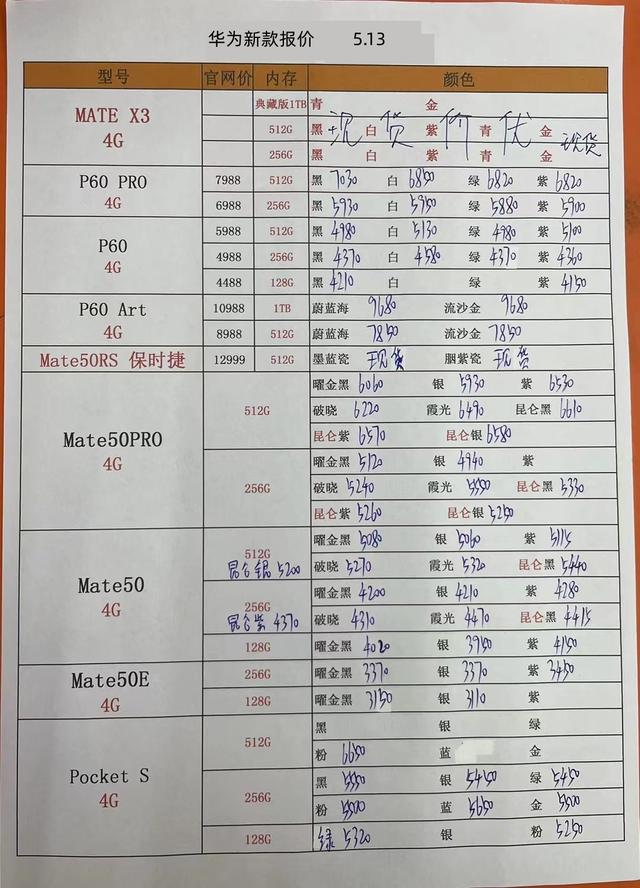 华为新款报价 5.13
型号 官网价 内存 颜色
MATE X3 4G 典藏版1TB 青 金
512G 黑 白 紫 青 金 现货价优
256G 黑 白 紫 青 金 现货
P60 PRO 4G 7988 512G 黑 7030 白 6850 绿 6820 紫 6820
6988 256G 黑 5930 白 5950 绿 5880 紫 5900
P60 4G 5988 512G 黑 4980 白 5130 绿 4980 紫 5100
4988 256G 黑 4370 白 4580 绿 4370 紫 4360
4488 128G 黑 4210 白 绿 紫 4150
P60 Art 4G 10988 1TB 蔚蓝海 9680 流沙金 9680
8988 512G 蔚蓝海 7850 流沙金 7850
Mate50RS 保时捷 12999 512G 墨蓝瓷 现货 胭紫瓷 现货
Mate50PRO 4G 512G 曜金黑 6060 银 5930 紫 6530
破晓 6220 霞光 6490 昆仑黑 6610
昆仑紫 6570 昆仑银 6580
256G 曜金黑 5120 银 4940 紫
破晓 5240 霞光 5550 昆仑黑 5330
昆仑紫 5260 昆仑银 5250
Mate50 4G 512G 曜金黑 5080 银 5060 紫 5115
昆仑银 5200 破晓 5270 霞光 5320 昆仑黑 5440
256G 曜金黑 4200 银 4210 紫 4280
昆仑紫 4370 破晓 4310 霞光 4470 昆仑黑 4415
128G 曜金黑 4020 银 3950 紫 4150
Mate50E 4G 256G 曜金黑 3370 银 3370 紫 3450
128G 曜金黑 3150 银 3110 紫
Pocket S 4G 512G 黑 银 绿
粉 6650 蓝 金
256G 黑 5550 银 5450 绿 5450
粉 5500 蓝 5650 金 5500
128G 绿 5320 银 粉 5250